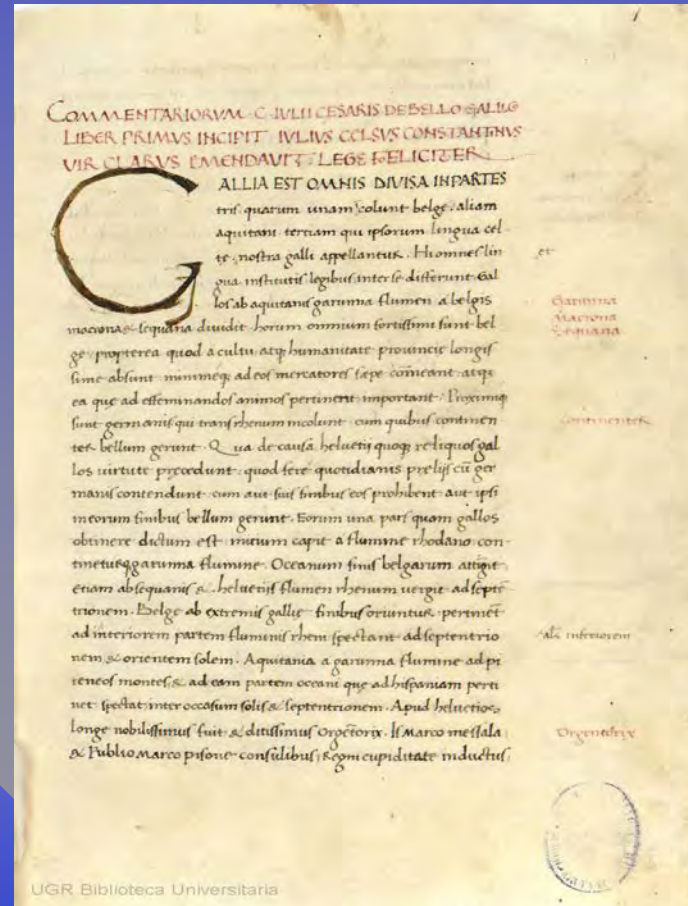 1
COMMENTARIORVM · C · IVLII CESARIS DE BELLO GALLICO
LIBER PRIMVS INCIPIT · IVLIVS CELSVS CONSTANTINVS
VIR CLARVS EMENDAVIT : LEGE FELICITER
GALLIA EST OMNIS DIVISA IN PARTES
tris · quarum unam colunt belge · aliam
aquitani · tertiam qui ipsorum lingua cel
te · nostra galli appellantur · Hi omnes lin
gua · institutis legibus inter se differunt · Gal
los ab aquitanis garunna flumen a belgis
macrona & sequana diuidit · horum omnium fortissimi sunt bel
ge · propterea quod a cultu atq; humanitate prouincie longis
sime absunt · minimeq; ad eos mercatores sępe com̄eant · atq;
ea que ad effeminandos animos pertinent important · Proximiq;
sunt germanis qui trans rhenum incolunt · cum quibus continen
ter bellum gerunt · Qua de causa helvetij quoq; reliquos gal
los uirtute pręcedunt · quod fere quotidianis prelijs cū ger
manis contendunt · cum aut suis finibus eos prohibent aut ipsi
in eorum finibus bellum gerunt · Eorum una pars quam gallos
obtinere dictum est · initium capit a flumine rhodano · con
tineturq; garunna flumine · Oceanum finis belgarum attigit
etiam ab sequanis & helvetijs flumen rhenum vergit ad septē
trionem · Belge ab extremis gallie finibus oriuntur · pertinēt
ad interiorem partem fluminis rheni spectant ad septentrio
nem & orientem solem · Aquitania a garunna flumine ad pi
reneos montes & ad eam partem oceani que ad hispaniam perti
net spectat inter occasum solis & septentrionem · Apud helvetios
longe nobilissimus fuit & ditissimus Orgetorix · Is Marco messala
& Publio Marco pisone consulibus, Regni cupiditate inductus
et
Garunna
Macrona
Sequana
continenter
al. inferiorem
Orgentorix
UGR Biblioteca Universitaria